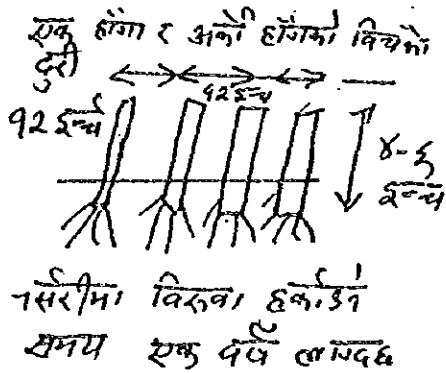 एक हाँगा र अर्को हाँगाको विचको
दुरी
१२ इन्च
१२ इन्च
४-६
इन्च
नर्सरीमा विरूवा हुर्काउने
समय एक वर्ष लाग्दछ